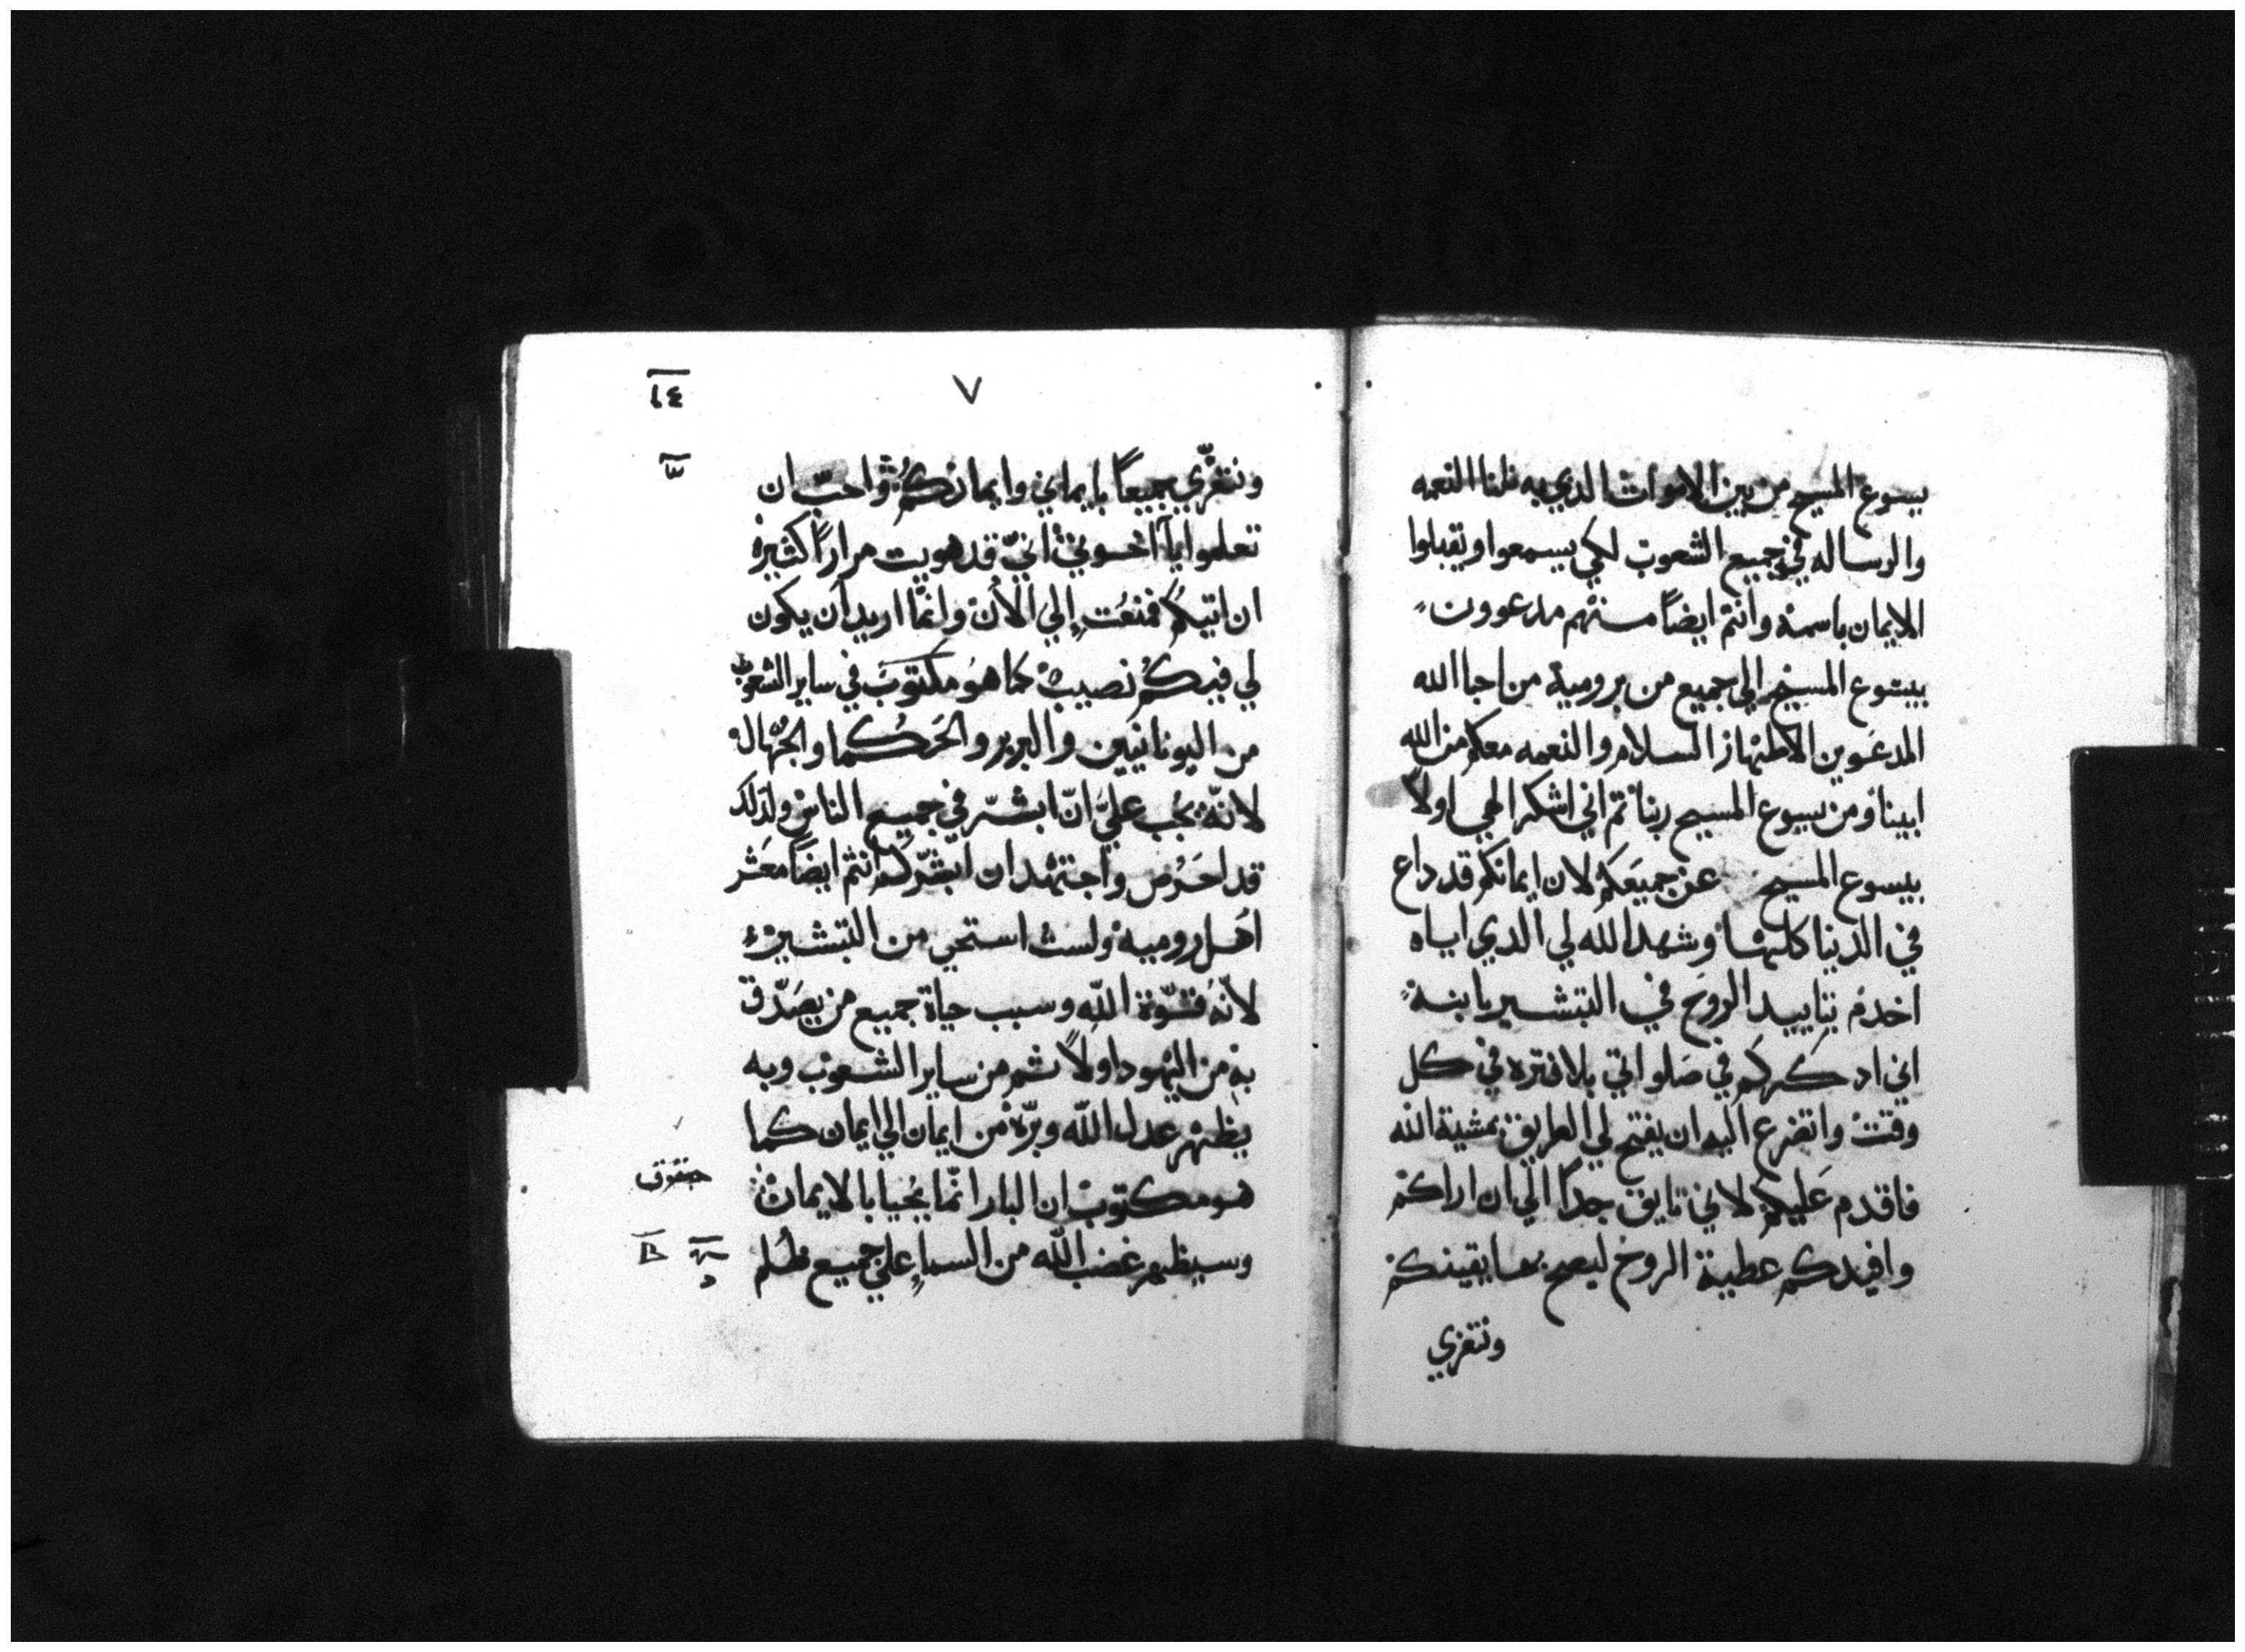 يسوع المسيح من بين الاموات الدي به نلنا النعمه
والرساله في جميع الشعوب لكي يسمعوا ويقبلوا
الايمان باسمه وانتم ايضاً منهم مدعوون
بيسوع المسيح الي جميع من بروميه من احبا الله
المدعوين الاطهار السلام والنعمه معكم من الله
ابينا ومن يسوع المسيح ربنا ثم اني اشكر الهي اولاً
بيسوع المسيح عن جميعكم لان ايمانكم قد داع
في الدنيا كلها وشهد الله لي الدي اياه
اخدم بتاييد الروح في التبشير بابنه
اني ادكركم في صلواتي بلا فتره في كل
وقت واتضرع اليه ان يفتح لي الطريق بمشية الله
فاقدم عليكم لاني تايق جداً الي ان اراكم
وافيدكم عطية الروح ليصح بها يقينكم
ونتعزي
٧
ونتعزّي جميعاً بايماني وايمانكم واحبّ ان
تعلموا يا اخوتي انيّ قد هويت مراراً كثيره
ان اتيكم فمنعت إلي الأن وانمّا اريد ان يكون
لي فيكم نصيب كما هو مكتوب في ساير الشعوب
من اليونانيين والبربر والحكما والجهّال
لانّه يجب عليّ انّ ابشّر في جميع الناس ولذلك
قد احرص واجتهد ان ابشّركم انتم ايضاً معشر
اهل روميه ولست استحي من التبشير
لأنّه قوّة اللّه وسبب حياة جميع من يصدّق
به من اليهود اولاً ثم من ساير الشعوب وبه
يظهر عدل اللّه وبرّه من ايمان الي ايمان كما
هو مكتوب ان البار انّما يحيا بالايمان
حبقوق
وسيظهر غضب اللّه من السماءِ علي جميع ظلم